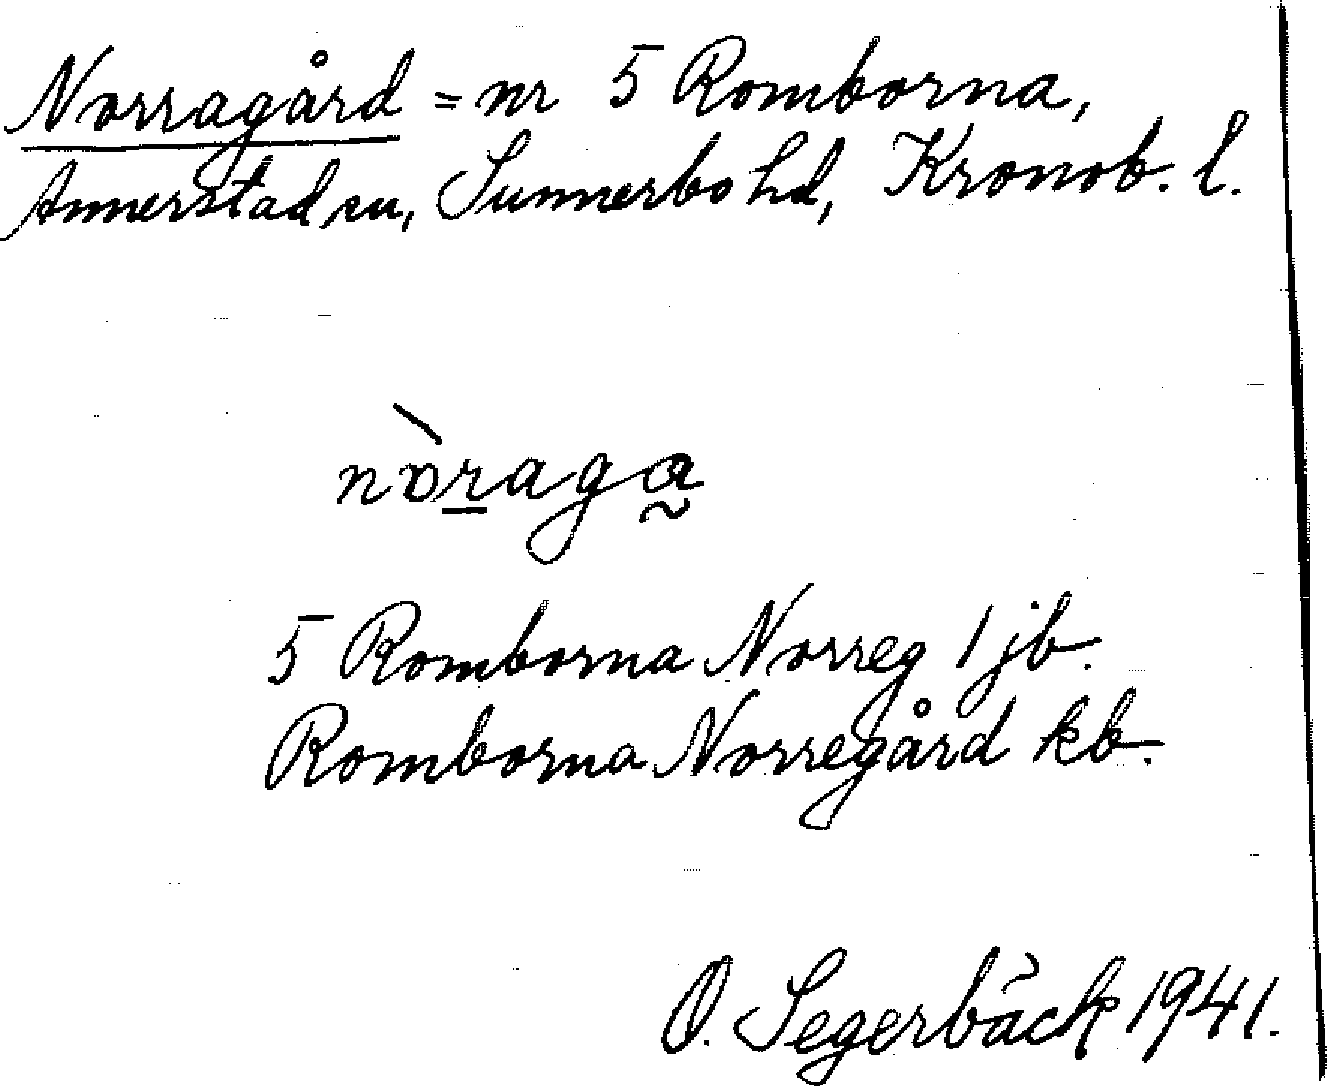 Norragård = nr 5 Romborna,
Annerstad sn, Sunnerbo hd, Kronob. l.
nòraga
5 Romborna Norreg 1 jb.
Romborna Norregård kb.
O. Segerbäck 1941.